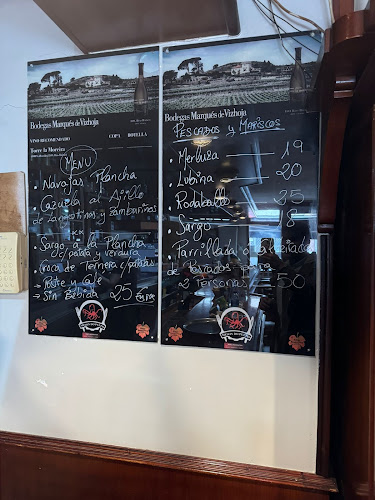 Bodegas Marqués de Vizhoja
VINO RECOMENDADO
COPA BOTELLA
Torre la Moreira
MENU
. Navajas Plancha
. Cazuela al Ajillo
de Langostinos y Zamburiñas
. Sargo a la Plancha
c/patata y verdura
. Croca de Ternera c/patatas
. Postre y Café
→ Sin Bebida 25 Euros
Bodegas Marqués de Vizhoja
PESCADOS y MARISCOS
. Merluza 19
. Lubina 20
. Rodaballo 25
. Sargo 18
. Parrillada
de Pescados para
2 Personas 50